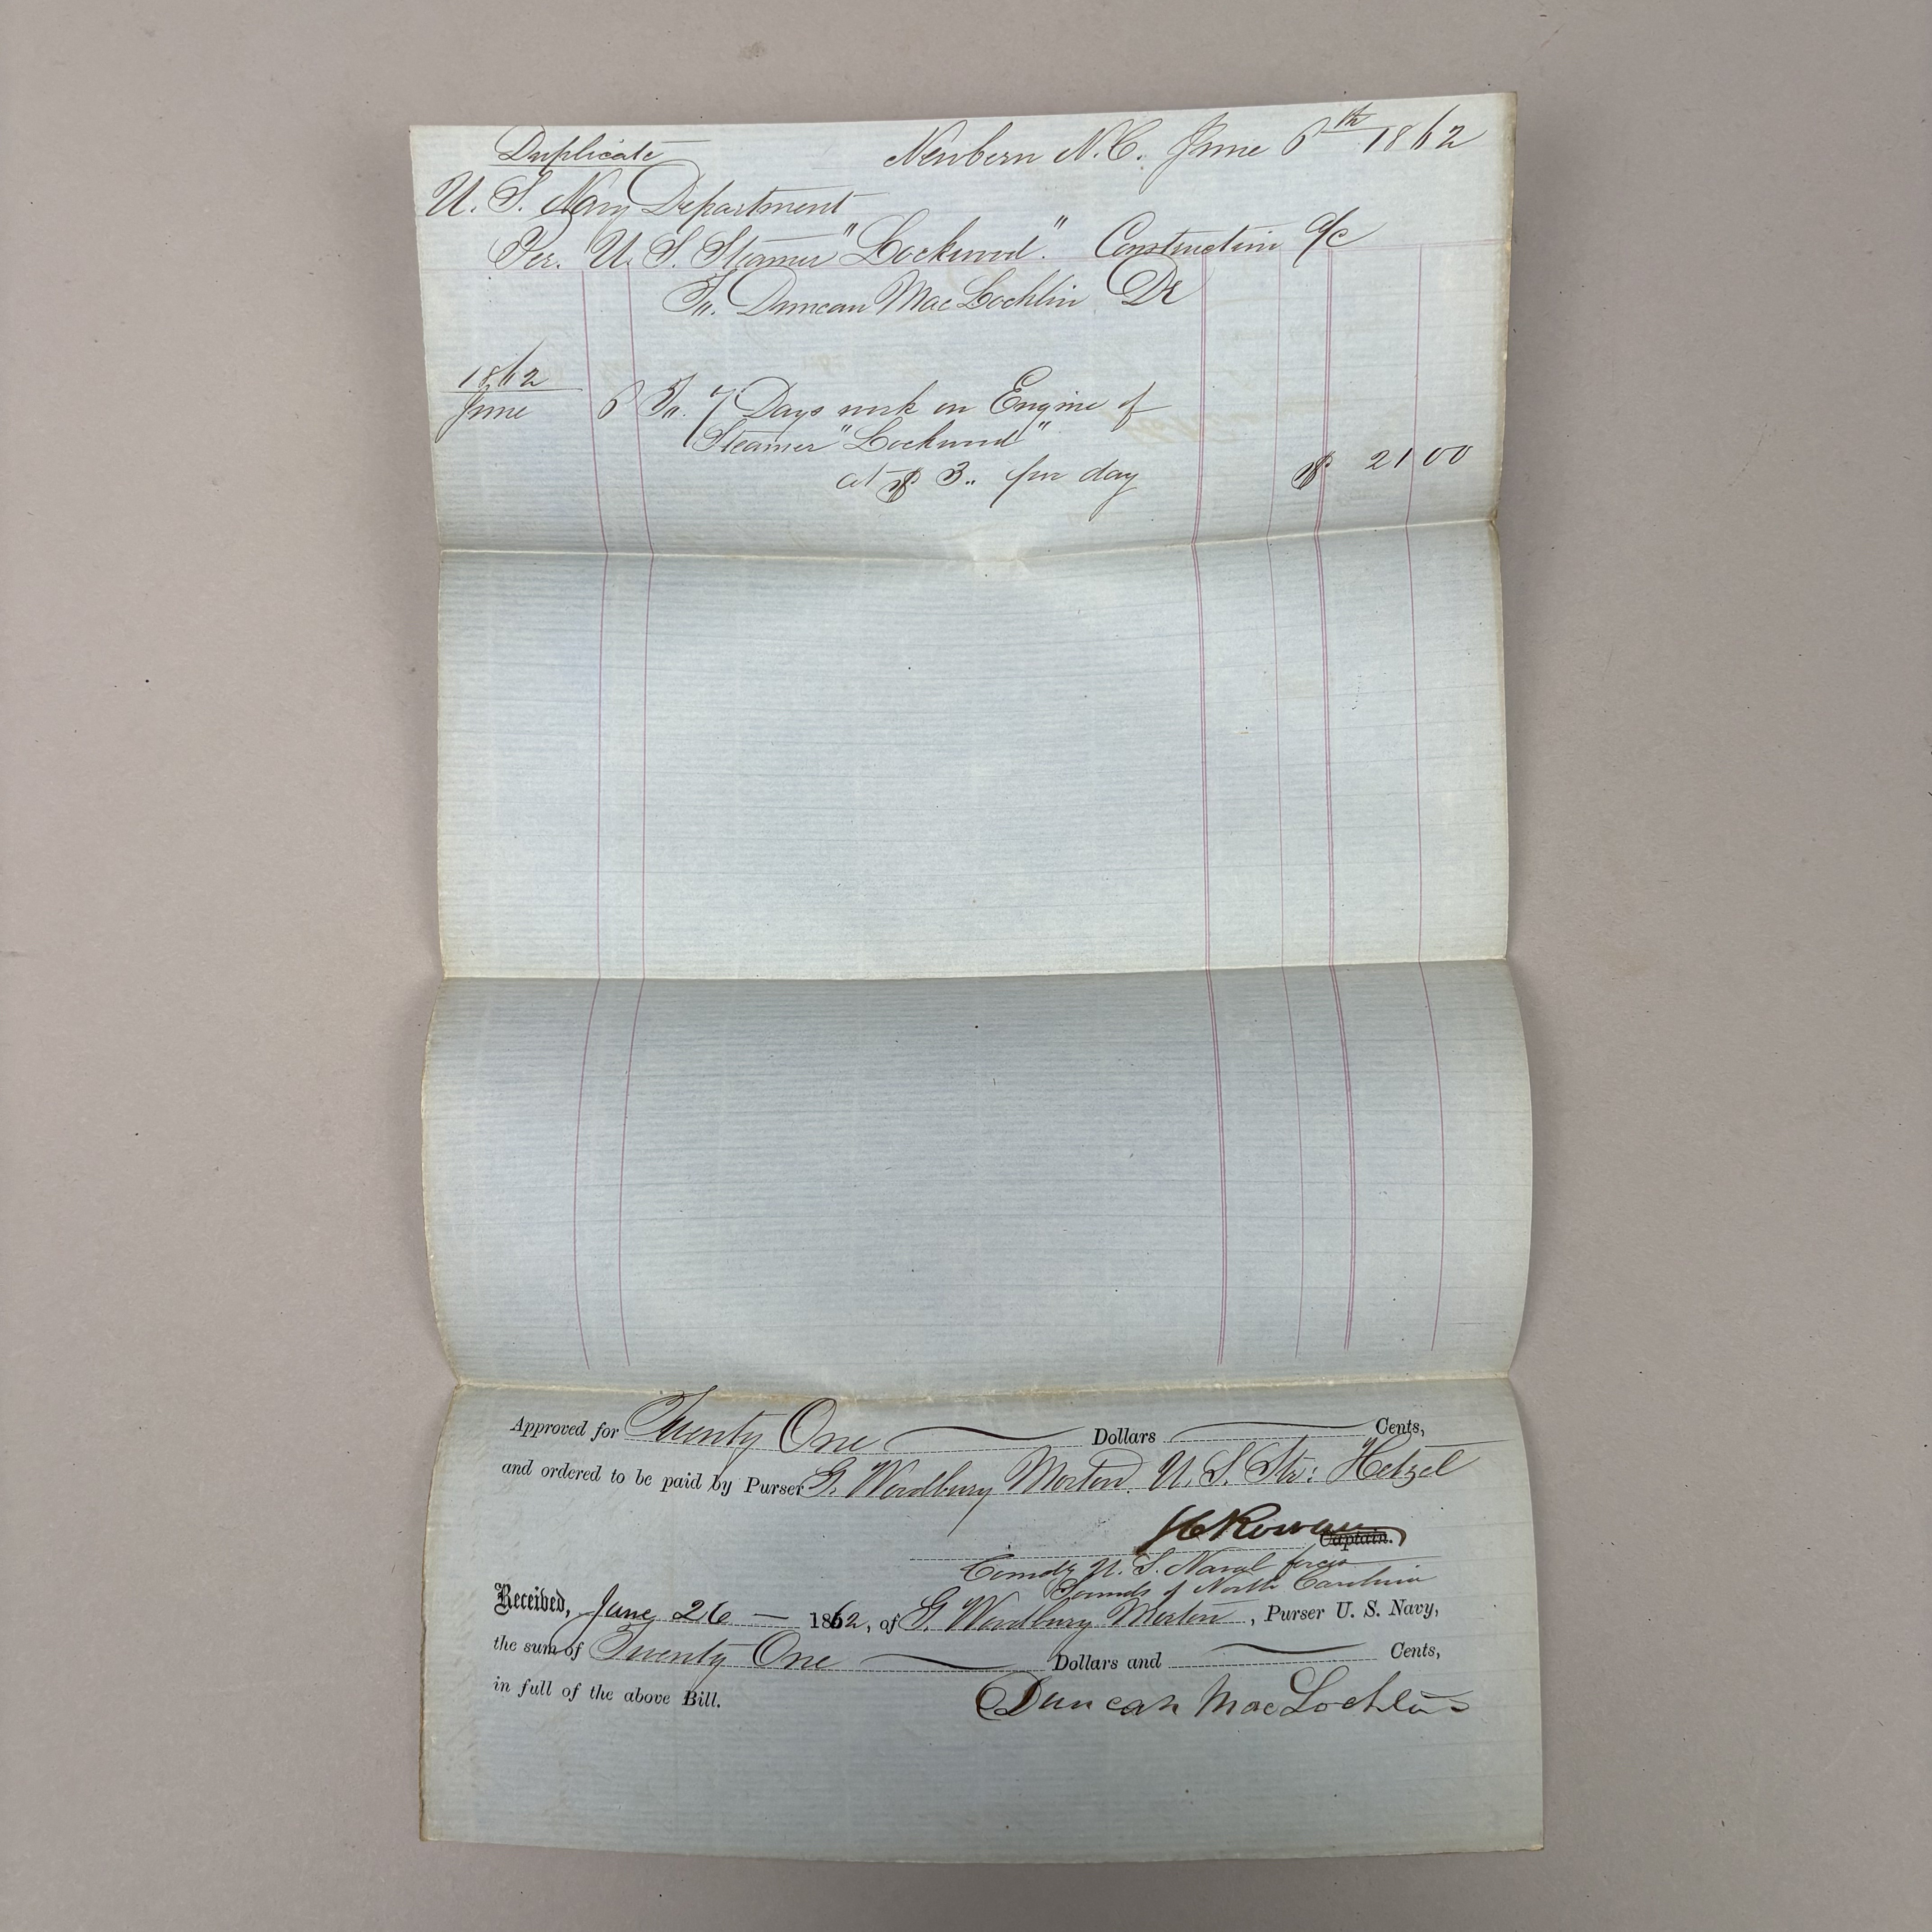 Duplicate
Newbern N.C. June 6th 1862
U. S. Navy Department
Per. U. S. Steamer "Lockwood". Construction a/c
To. Duncan MacLochlin Dr
1862
June 6 To. 7 Days work on Engine of
Steamer "Lockwood"
at $ 3.. per day $ 21 00
Approved for Twenty One Dollars Cents,
and ordered to be paid by Purser G. Woodbury Morton. U. S. Str: Hetzel
Rowan Captain.
Comdg U. S. Naval forces
Sounds of North Carolina
Received, June 26 — 1862, of G. Woodbury Morton, Purser U. S. Navy,
the sum of Twenty One Dollars and Cents,
in full of the above Bill.
Duncan MacLochlin